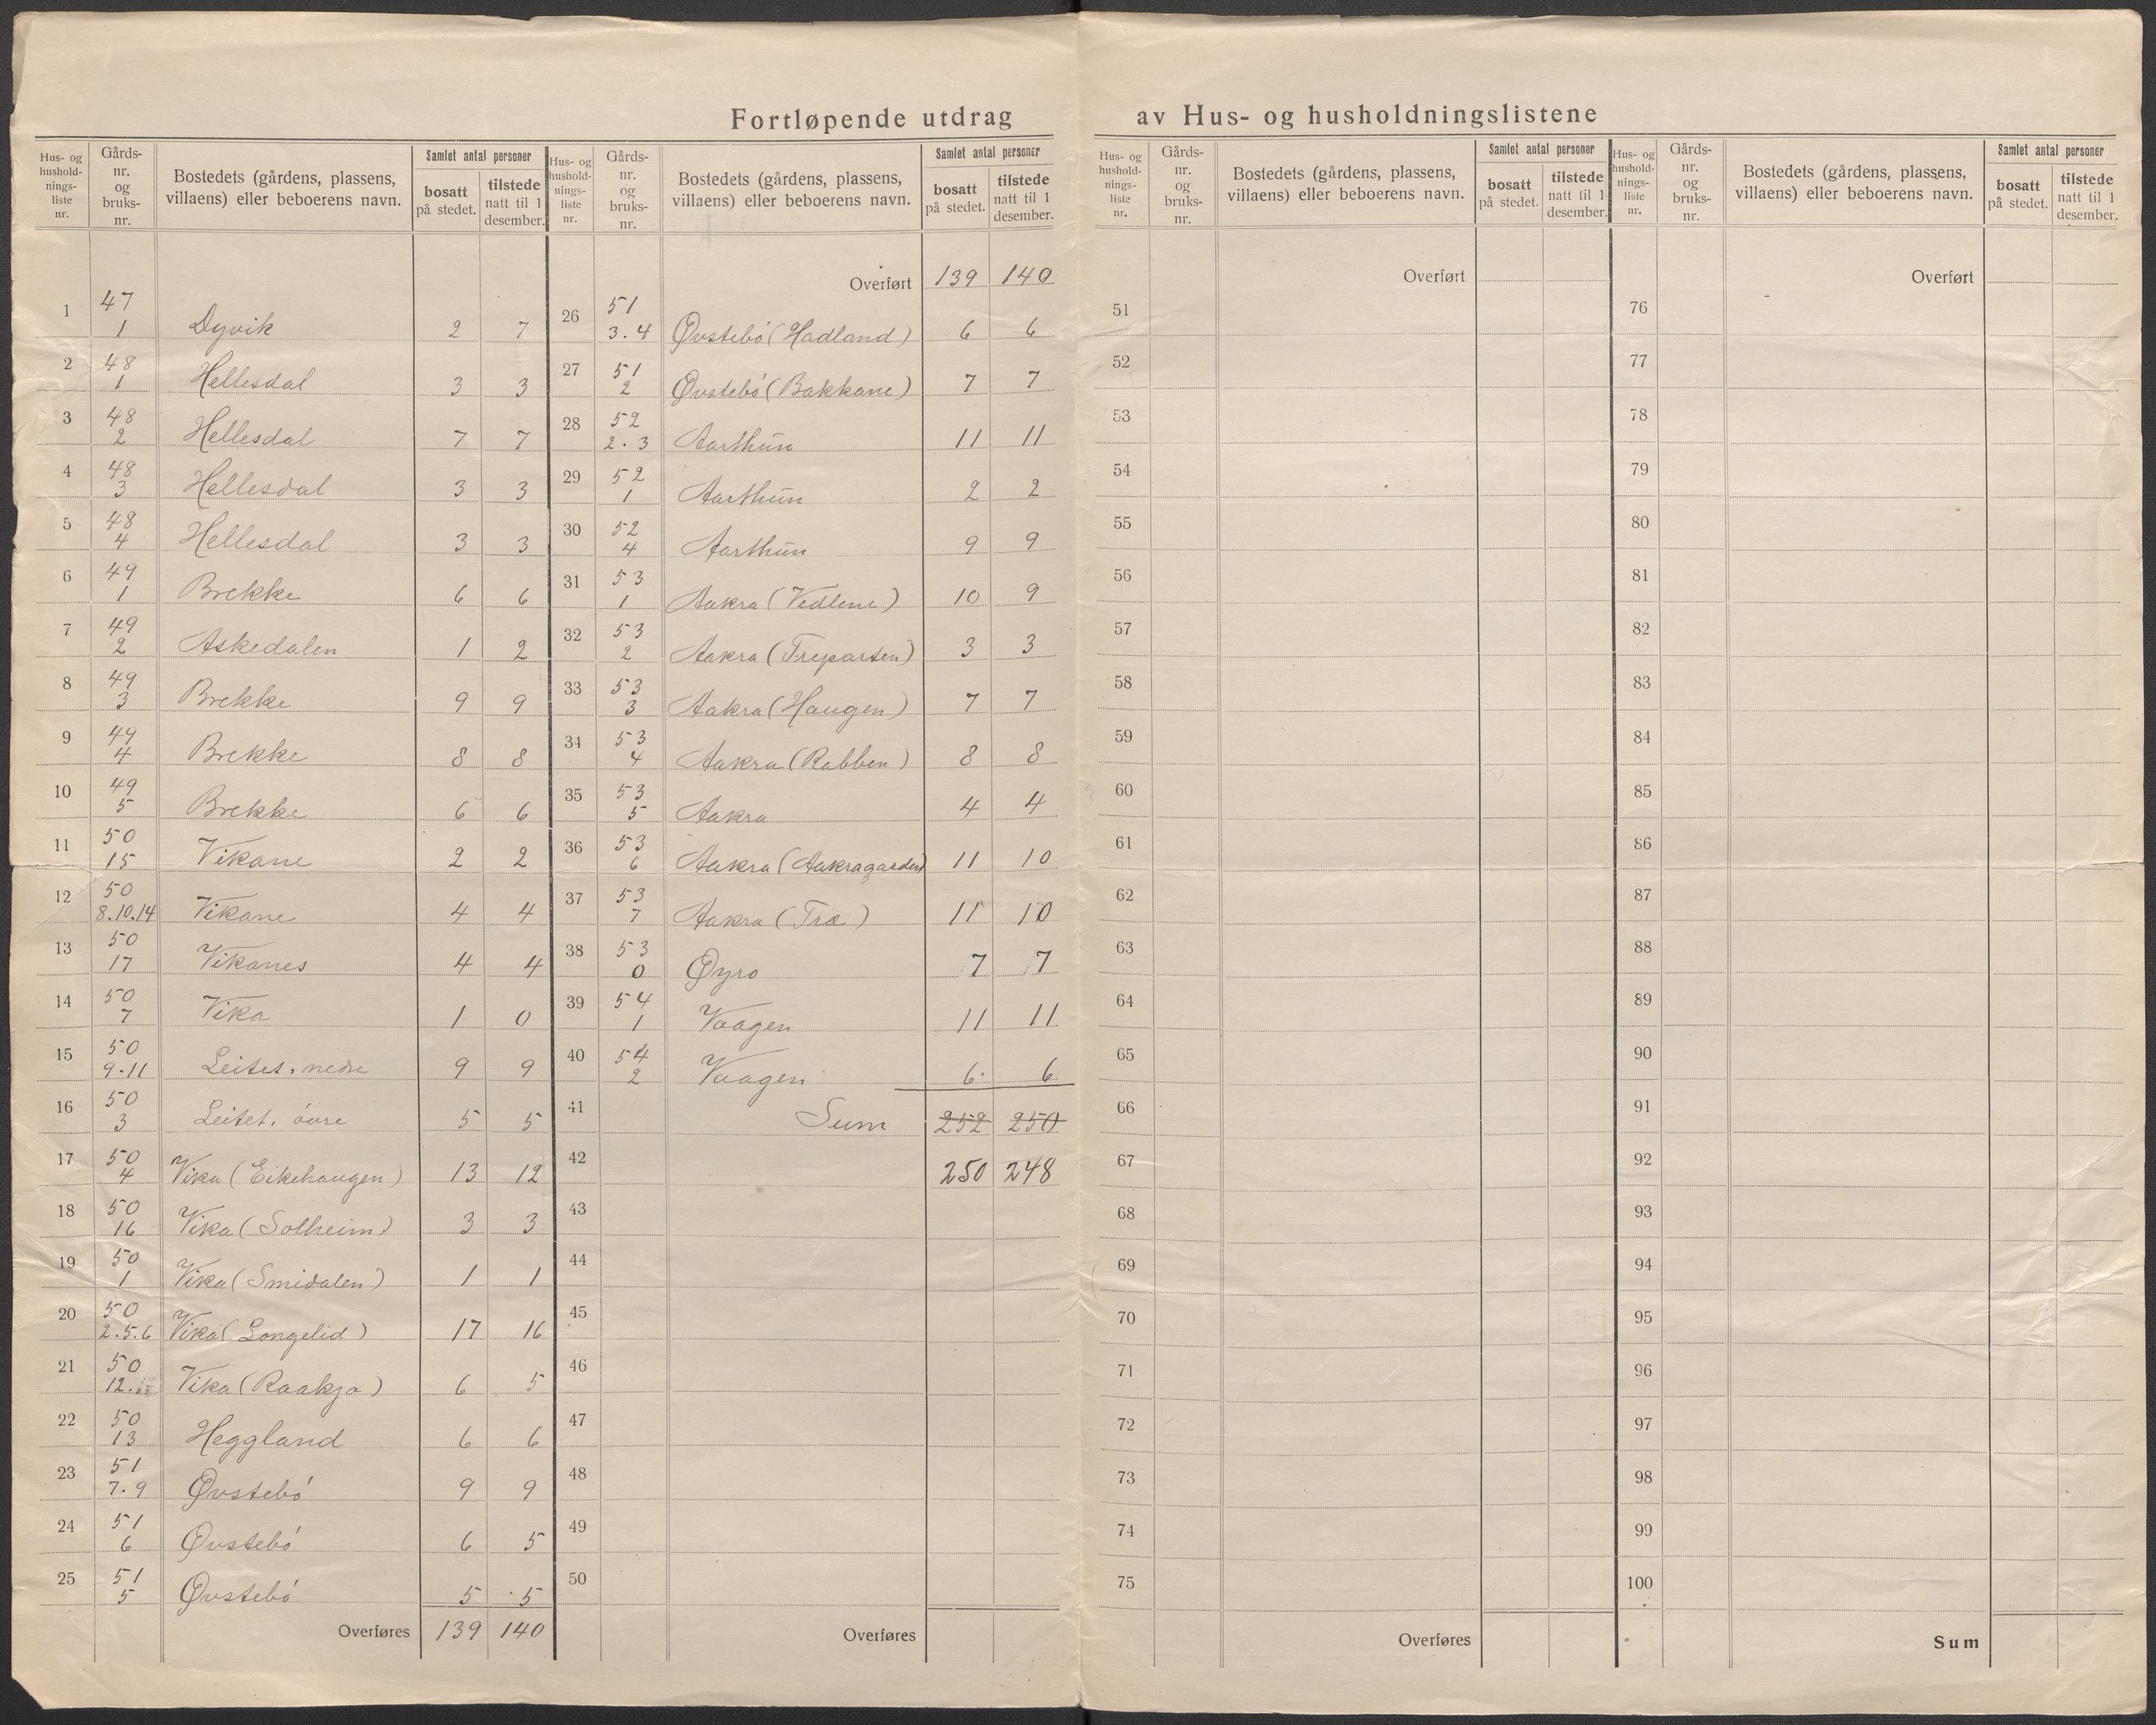 Fortløpende utdrag av Hus- og husholdningslistene
Hus- og hushold- nings- liste nr.
Gårds- nr. og bruks- nr.
Bostedets (gårdens, plassens, villaens) eller beboerens navn.
Samlet antal personer
bosatt på stedet.
tilstede natt til 1 desember.
1 47 1 Dyvik 2 7
2 48 1 Hellesdal 3 3
3 48 2 Hellesdal 7 7
4 48 3 Hellesdal 3 3
5 48 4 Hellesdal 3 3
6 49 1 Brekke 6 6
7 49 2 Askedalen 1 2
8 49 3 Brekke 9 9
9 49 4 Brekke 8 8
10 49 5 Brekke 6 6
11 50 15 Vikane 2 2
12 50 8.10.14 Vikane 4 4
13 50 17 Vikanes 4 4
14 50 7 Vika 1 0
15 50 9.11 Leitet. nedre 9 9
16 50 3 Leitet. óvre 5 5
17 50 4 Vika (Eikehaugen) 13 12
18 50 16 Vika (Solheim) 3 3
19 50 1 Vika (Smidalen) 1 1
20 50 2.5.6 Vika (Longelid) 17 16
21 50 12. Vika (Raakja) 6 5
22 50 13 Heggland 6 6
23 51 7.9 Øvstebó 9 9
24 51 6 Øvstebó 6 5
25 51 5 Øvstebó 5 5
Overføres 139 140
Hus- og hushold- nings- liste nr.
Gårds- nr. og bruks- nr.
Bostedets (gårdens, plassens, villaens) eller beboerens navn.
Samlet antal personer
bosatt på stedet.
tilstede natt til 1 desember.
Overført 139 140
26 51 3.4 Øvstebó (Hadland) 6 6
27 51 2 Øvstebó (Bakkane) 7 7
28 52 2.3 Aarthun 11 11
29 52 1 Aarthun 2 2
30 52 4 Aarthun 9 9
31 53 1 Aakra (Vedlene) 10 9
32 53 2 Aakra (Treparten) 3 3
33 53 3 Aakra (Haugen) 7 7
34 53 4 Aakra (Rabben) 8 8
35 53 5 Aakra 4 4
36 53 6 Aakra (Aakragarden) 11 10
37 53 7 Aakra (Træ) 11 10
38 53 0 Øyro 7 7
39 54 1 Vaagen 11 11
40 54 2 Vaagen 6 6
41 Sum 252 250
42 250 248
43
44
45
46
47
48
49
50
Overføres
Hus- og hushold- nings- liste nr.
Gårds- nr. og bruks- nr.
Bostedets (gårdens, plassens, villaens) eller beboerens navn.
Samlet antal personer
bosatt på stedet.
tilstede natt til 1 desember.
Overført
51
52
53
54
55
56
57
58
59
60
61
62
63
64
65
66
67
68
69
70
71
72
73
74
75
Overføres
Hus- og hushold- nings- liste nr.
Gårds- nr. og bruks- nr.
Bostedets (gårdens, plassens, villaens) eller beboerens navn.
Samlet antal personer
bosatt på stedet.
tilstede natt til 1 desember.
Overført
76
77
78
79
80
81
82
83
84
85
86
87
88
89
90
91
92
93
94
95
96
97
98
99
100
Sum